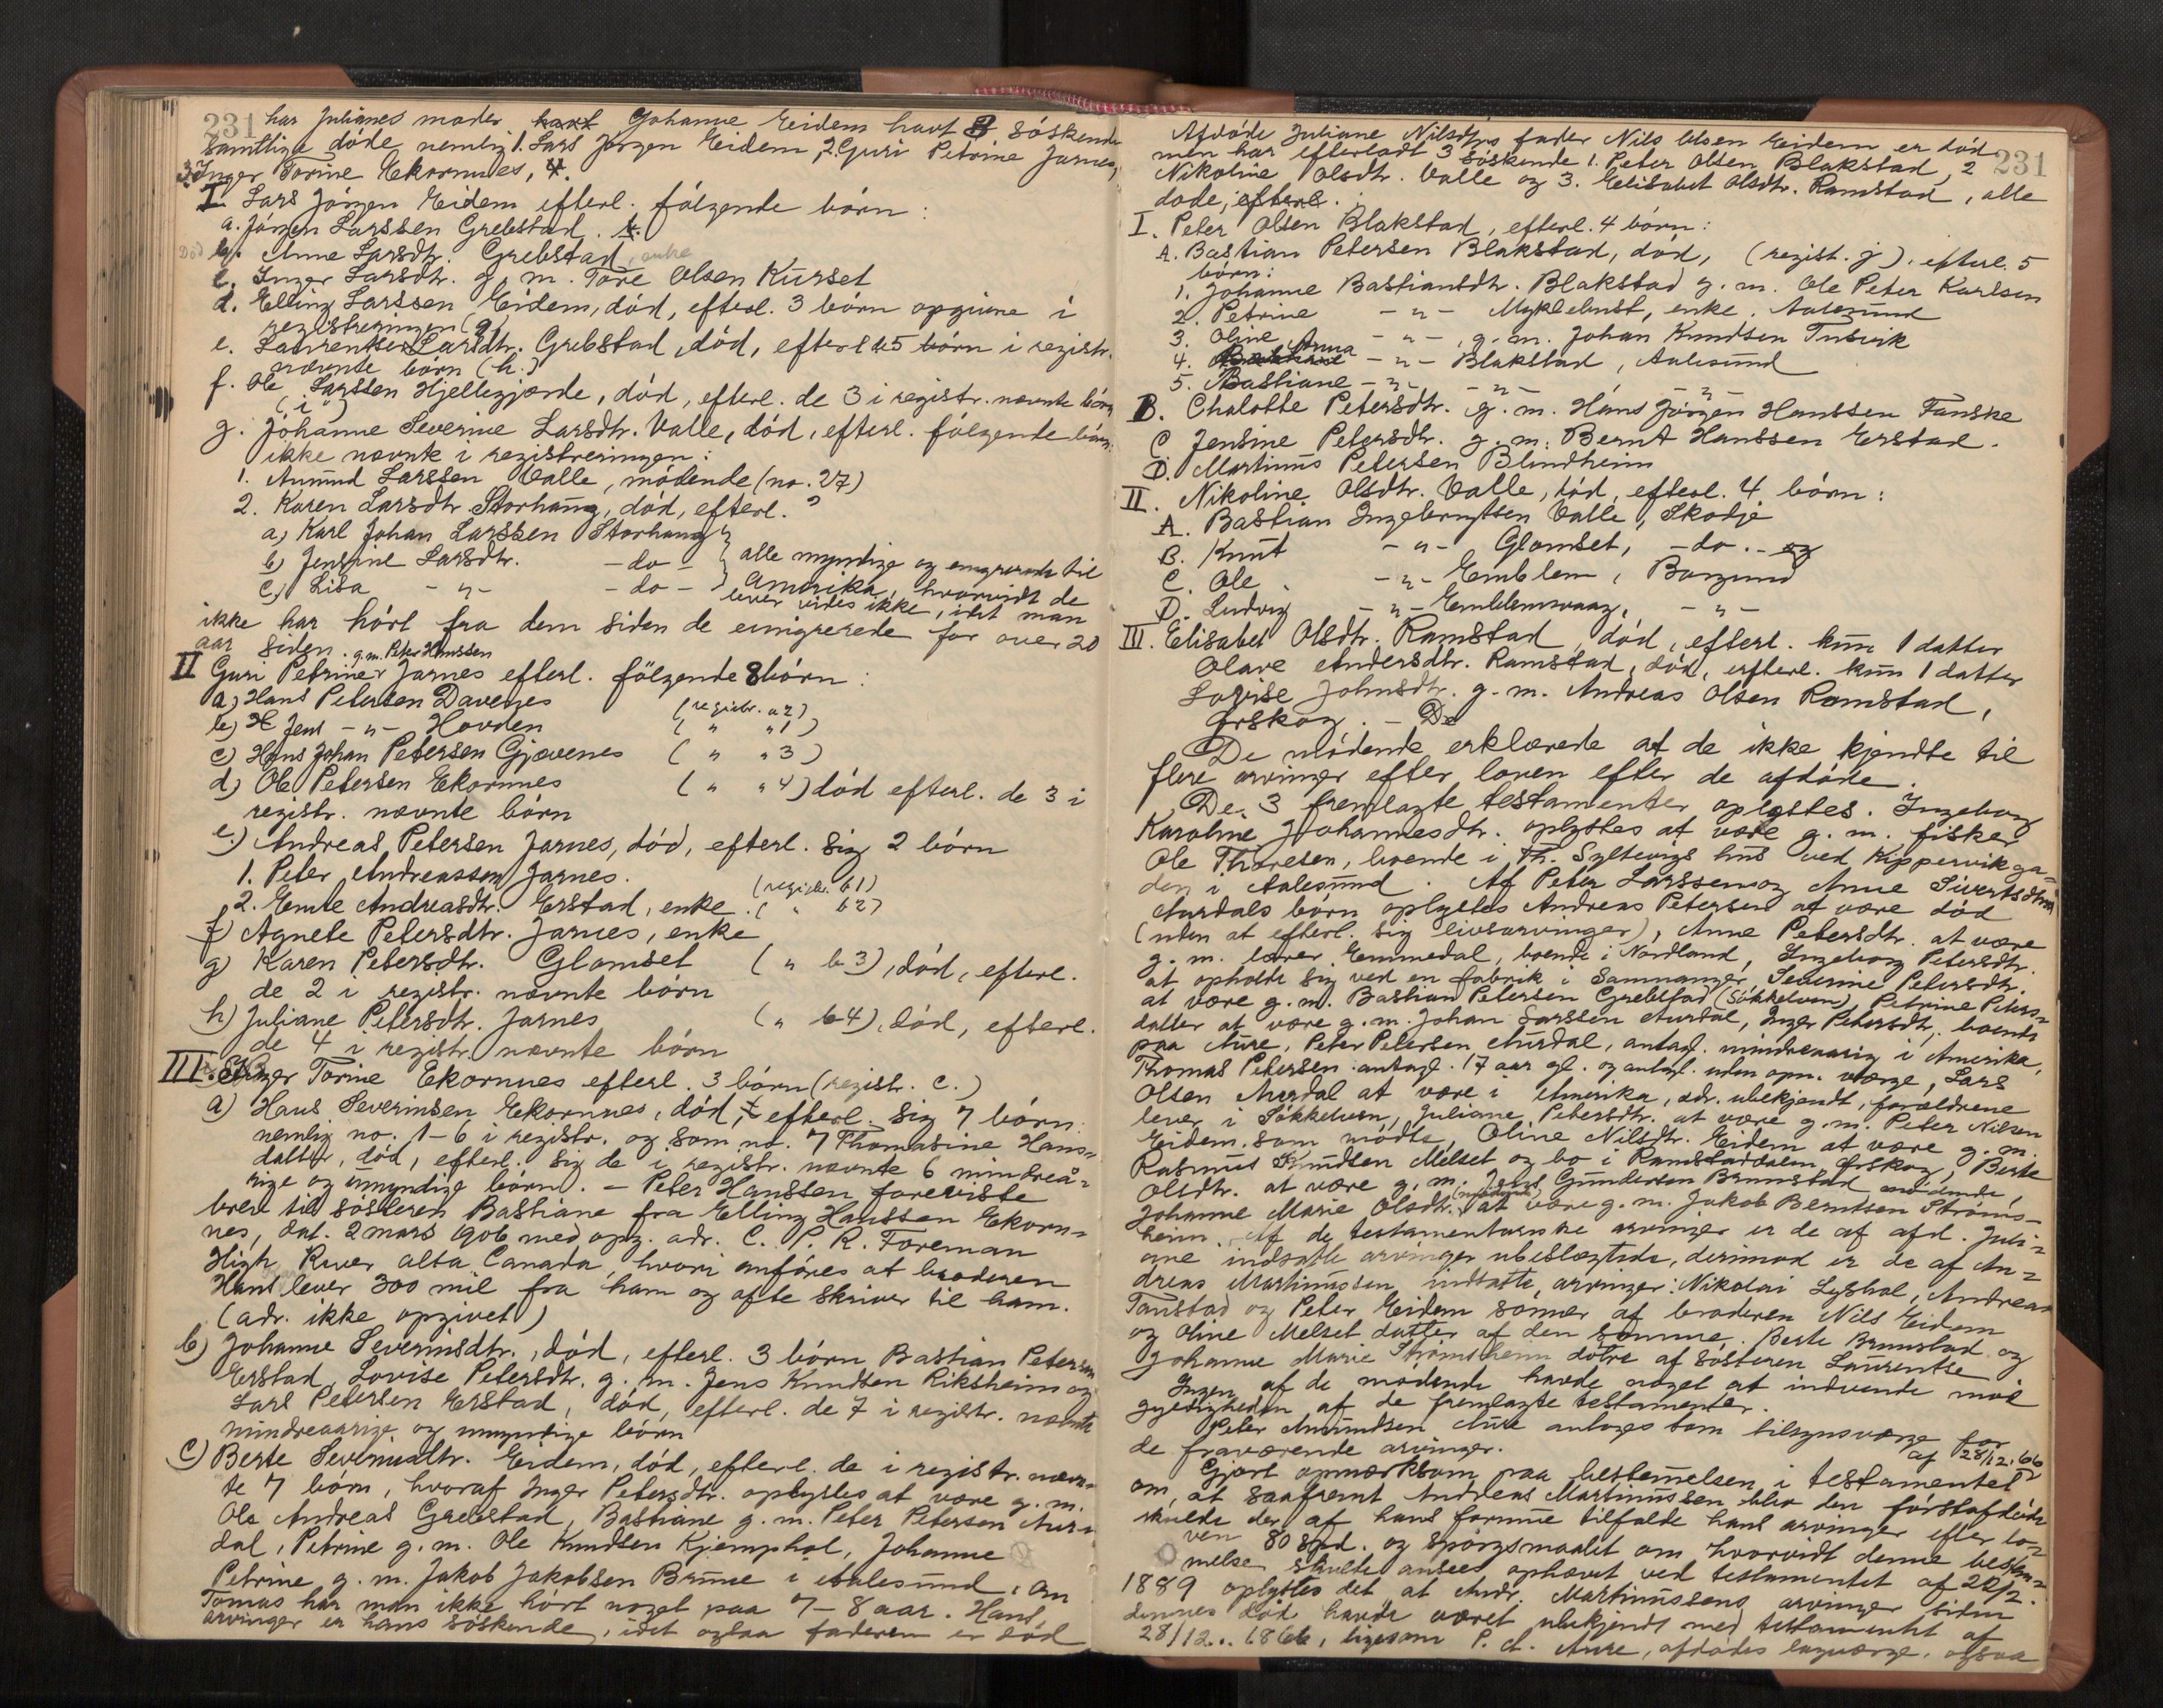 231 har Julianes moder havt Johanne Eidem havt 3 søskende
samtlige døde, nemlig 1. Lars Jørgen Eidem, 2. Guri Petrine Jarnes,
3. Inger Torine Ekornnes, 4.
I. Lars Jørgen Eidem efterl. følgende børn:
a. Jørgen Larssen Grebstad.
Død b. Anne Larsdtr. Grebstad, enke
c. Inger Larsdtr. g. m. Tore Olsen Kurset
d. Elling Larssen Eidem, død, efterl. 3 børn opgivne i
registreringen (g.
e. Laurentse Larsdtr. Grebstad, død, efterl. de 5 børn i registr.
nævnte børn (h.)
f. Ole Larssen Hjellegjærde, død, efterl. de 3 i registr. nævnte børn
("i")
g. Johanne Severine Larsdtr. Valle, død, efterl. følgende børn
ikke nævnte i registreringen:
1. Amund Larssen Valle, mødende (no. 27)
2. Karen Larsdtr Storhaug, død, efterl. ?
a) Karl Johan Larssen Storhaug
b) Jensine Larsdtr. - do - alle myndige og emigrerede til
c) Lisa - " - - do - Amerika, hvorvidt de
lever vides ikke, idet man
ikke har hørt fra dem siden de emigrerede for over 20
aar siden. g. m. Peter Hanssen
II Guri Petrine Jarnes efterl. følgende 8 børn:
a) Hans Petersen Davenes (registr. a2)
b) Jens - " - Hovden ( " " 1)
c) Hans Johan Petersen Gjævenes ( " " 3)
d) Ole Petersen Ekornnes ( " " 4) død efterl. de 3 i
registr. nævnte børn
e.) Andreas Petersen Jarnes, død, efterl. sig 2 børn
1. Peter Andreassen Jarnes. (registr. b1)
2. Emte Andreasdtr. Erstad, enke. ( " b2)
f) Agnete Petersdtr. Jarnes, enke
g) Karen Petersdtr. Glomset ( " b3), død, efterl.
de 2 i registr. nævnte børn
h) Juliane Petersdtr. Jarnes ( " b4), død, efterl.
de 4 i registr. nævnte børn
III. Inger Torine Ekornnes efterl. 3 børn (registr. c.)
a) Hans Severinsen Ekornnes, død, efterl. sig 7 børn
nemlig no. 1-6 i registr. og som no. 7 Thomasine Hans-
datter, død, efterl. sig de i registr. nævnte 6 mindreå-
rige og umyndige børn. - Peter Hanssen foreviste
brev til søsteren Bastiane fra Elling Hanssen Ekorn-
nes, dat. 2 mars 1906 med opg. adr. C. P. R. Foreman
High River alta Canada, hvori anføres at broderen
Hans lever 300 mil fra ham og ofte skriver til ham.
(adr. ikke opgivet)
b) Johanne Severinsdtr., død, efterl. 3 børn Bastian Petersen
Erstad, Lovise Petersdtr. g. m. Jens Knudsen Riksheim og
Lars Petersen Erstad, død, efterl. de 7 i registr. nævnte
mindreaarige og umyndige børn
c) Berte Severinsdtr. Eidem, død, efterl. de i registr. nævn-
te 7 børn, hvoraf Inger Petersdtr. oplystes at være g. m.
Ole Andreas Grebstad, Bastiane g. m. Peter Petersen Aur-
dal, Petrine g. m. Ole Knudsen Kjemphol, Johanne
Petrine g. m. Jakob Jakobsen Brune i Aalesund. Om
Tomas har man ikke hørt noget paa 7-8 aar. Hans
arvinger er hans søskende, idet ogsaa faderen er død
231
Afdøde Juliane Nilsdtrs fader Nils Olsen Eidem er død
men har efterladt 3 søskende 1. Peter Olsen Blakstad, 2
Nikoline Olsdtr. Valle og 3. Elisabet Olsdtr. Ramstad, alle
døde, efterl.
I. Peter Olsen Blakstad, efterl. 4 børn:
A. Bastian Petersen Blakstad, død, (regist. j). efterl. 5
børn:
1. Johanne Bastiansdtr. Blakstad g. m. Ole Peter Karlsen
2. Petrine - " - Myklebust, enke. Aalesund
3. Oline - " - , g. m. Johan Knudsen Tusvik
4. Anna - " - Blakstad, Aalesund
5. Bastiane - " - - " - - " -
B. Chalotte Petersdtr. g. m. Hans Jørgen Hanssen Fauske
C Jensine Petersdtr. g. m. Bernt Hanssen Erstad.
D. Martinus Petersen Blindheim
II. Nikoline Olsdtr. Valle, død, efterl. 4 børn:
A. Bastian Ingebrigtsen Valle, Skodje
B. Knut - " - Glomset, - do. - og
C. Ole - " - Emblem, Borgund
D. Ludvig - " - Emblemsvaag, - " -
III. Elisabet Olsdtr. Ramstad, død, efterl. kun 1 datter
Olave Andersdtr. Ramstad, død, efterl. kun 1 datter
Lovise Johnsdtr. g. m. Andreas Olsen Ramstad,
Ørskog. - De
De mødende erklærede at de ikke kjendte til
flere arvinger efter loven efter de afdøde.
De 3 fremlagte testamenter oplæstes. Ingeborg
Karoline Johannesdtr. oplystes at være g. m. fisker
Ole Thoresen, boende i Th. Syltevigs hus ved Kippervikga-
den i Aalesund. Af Peter Larssen og Anne Sivertsdtrs
Aurdals børn oplystes Andreas Petersen at være død
(uden at efterl. sig livsarvinger), Anne Petersdtr. at være
g. m. lærer Emmedal, boende i Nordland, Ingeborg Petersdtr.
at opholde sig ved en fabrik i Samnanger, Severine Petersdtr.
at være g. m. Bastian Petersen Grebstad (Søkkelven), Petrine Peters-
datter at være g. m. Johan Larssen Aurdal, Inger Petersdtr., boende
paa Aure, Peter Petersen Aurdal, antagl. mindreaarig i Amerika,
Thomas Petersen antagl. 17 aar gl. og antagl. uden opn. værge, Lars
Olsen Aurdal at være i Amerika, adr. ubekjendt, forældrene
lever i Søkkelven, Juliane Petersdtr. at være g. m. Peter Nilsen
Eidem som mødte, Oline Nilsdtr. Eidem at være g. m.
Rasmus Knudsen Melset og bo i Ramstaddalen Ørskog, Berte
Olsdtr. at være g. m. Gundersen Brunstad mødende,
Johanne Marie Olsdtr. (mødende) at være g. m. Jakob Berntsen Strøms-
heim. Af de testamentariske arvinger er de af afd. Juli-
ane indsatte arvinger ubeslægtede, derimod er de af An-
dreas Martinussen indsatte arvinger: Nikolai Lyshol, Andreas
Tanstad og Peter Eidem sønner af broderen Nils Eidem
og Oline Melset datter af den samme. Berte Brunstad og
Johanne Marie Strømsheim døtre af søsteren Laurentse
Ingen af de mødende havde noget at indvende mod
gyldigheden af de fremlagte testamenter.
Peter Amundsen Aure antoges som tilsynsværge for
de fraværende arvinger. af 28/12. 66
Gjort opmærksom paa bestemmelsen i testamentet
om, at saafremt Andreas Martinussen blev den førstafdøde
skulde der af hans formue tilfalde hans arvinger efter lo-
ven 80 spd. og spørgsmaalet om hvorvidt denne bestem-
melse skulde ansees ophævet ved testamentet af 22/2.
1889 oplystes det at Andr. Martinussens arvinger siden
dennes død havde været ubekjendt med testamentet af
28/12. 1866, ligesom P. A. Aure, afdødes lagværge, ogsaa